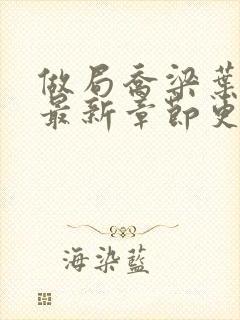 做局喬梁葉
最新章節更
海染藍